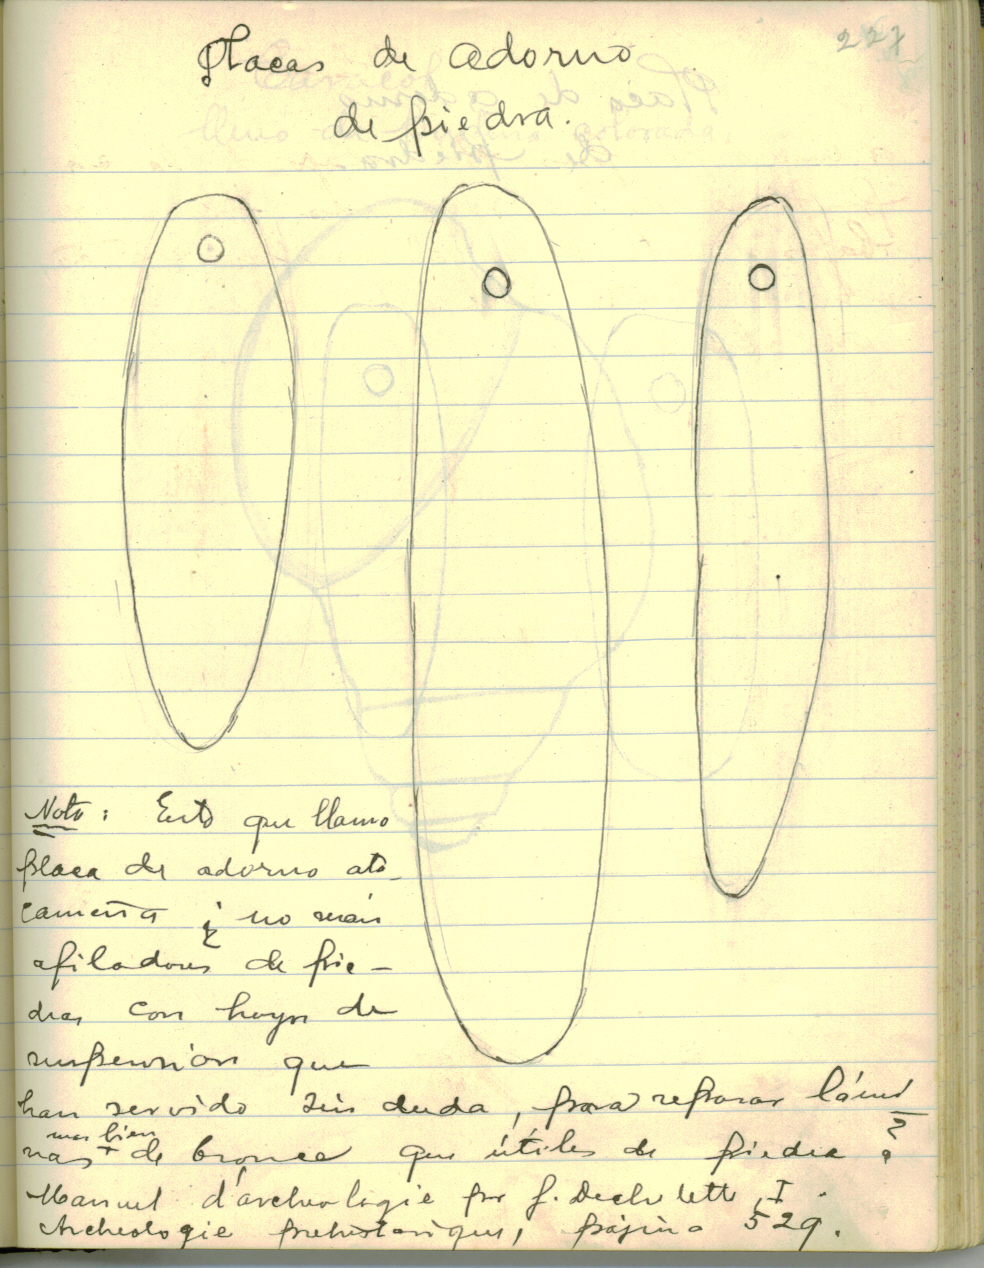 227
Placas de adorno
de piedra.
Nota: Esto que llamo
placa de adorno ata-
cameña ¿ no serán
afiladores de pie-
dras con hoyos de
suspension que
han servido sin duda, para reparar lámi
mas bien
nas de bronce que útiles de piedra ?
Manuel d'archeologie por J. Dechelette, I.
Archeologie prehistorique, página 529.